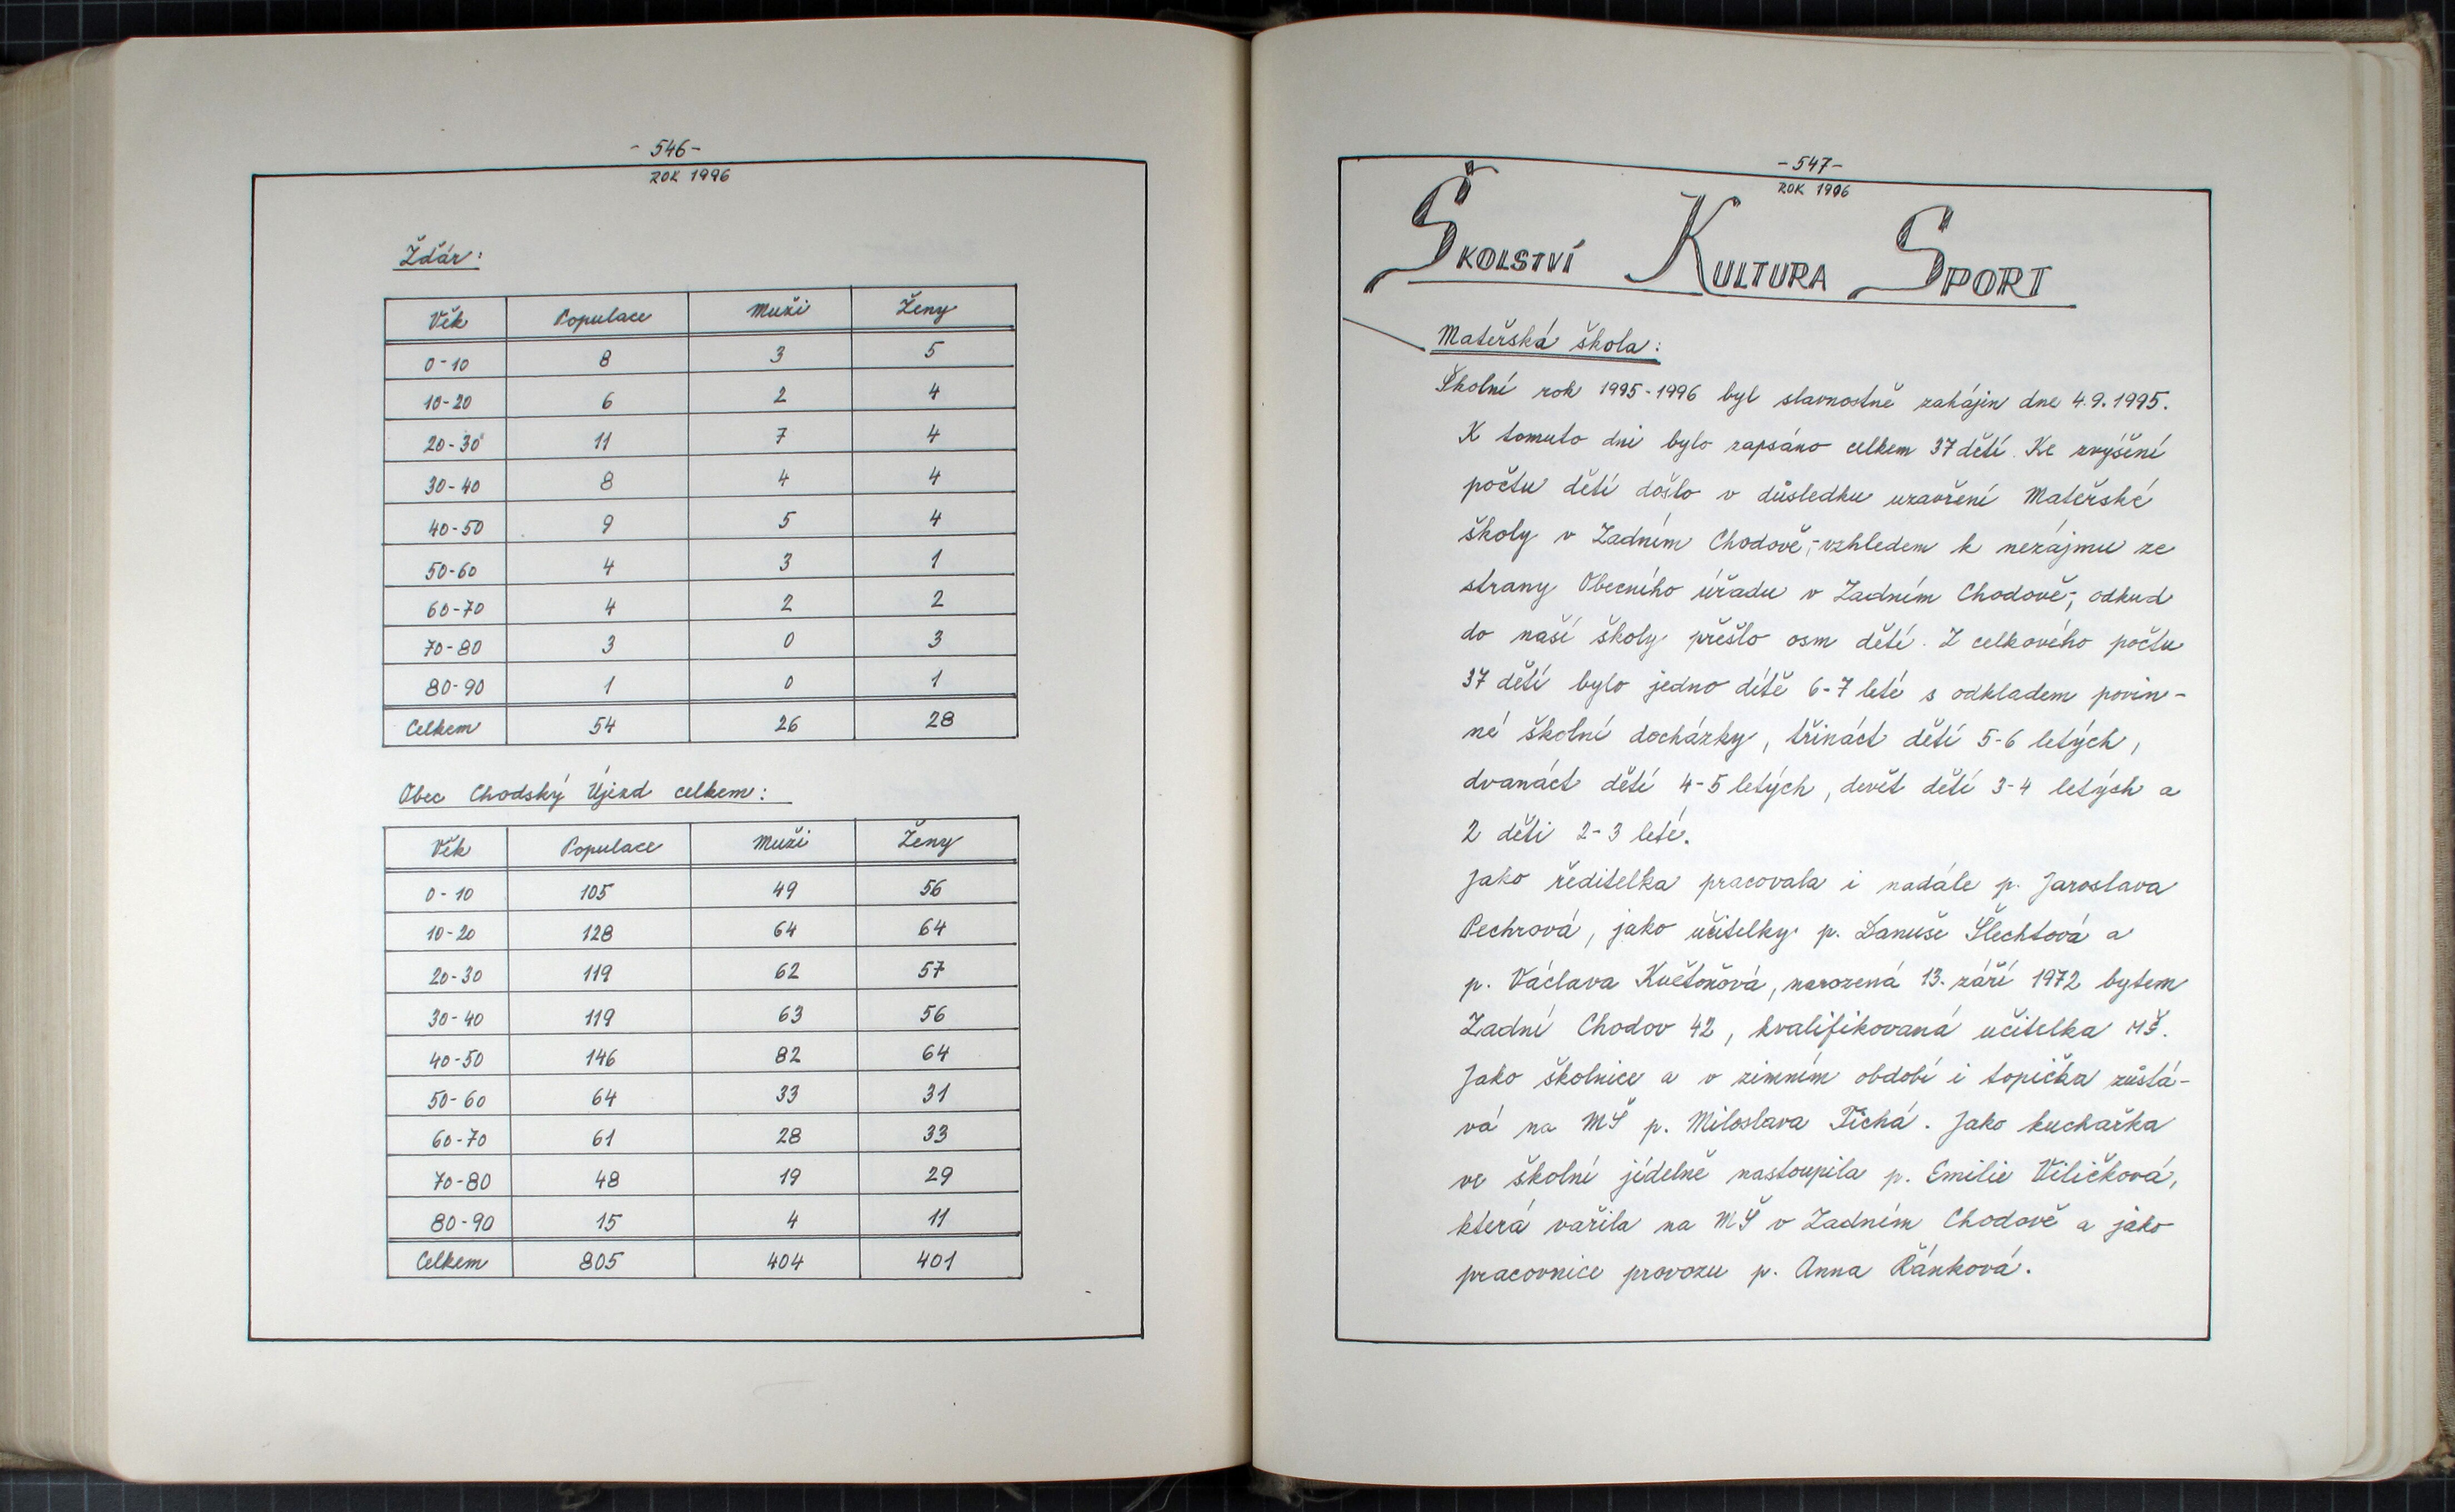 - 546 -
ROK 1996
Žďár:
Věk Populace Muži Ženy
0-10 8 3 5
10-20 6 2 4
20-30 11 7 4
30-40 8 4 4
40-50 9 5 4
50-60 4 3 1
60-70 4 2 2
70-80 3 0 3
80-90 1 0 1
Celkem 54 26 28
Obec Chodský Újezd celkem:
Věk Populace Muži Ženy
0-10 105 49 56
10-20 128 64 64
20-30 119 62 57
30-40 119 63 56
40-50 146 82 64
50-60 64 33 31
60-70 61 28 33
70-80 48 19 29
80-90 15 4 11
Celkem 805 404 401
- 547 -
ROK 1996
ŠKOLSTVÍ KULTURA SPORT
Mateřská škola:
Školní rok 1995-1996 byl slavnostně zahájen dne 4.9.1995.
K tomuto dni bylo zapsáno celkem 37 dětí. Ke zvýšení
počtu dětí došlo v důsledku uzavření Mateřské
školy v Zadním Chodově,- vzhledem k nezájmu ze
strany Obecního úřadu v Zadním Chodově-, odkud
do naší školy přešlo osm dětí. Z celkového počtu
37 dětí bylo jedno dítě 6-7 leté s odkladem povin-
né školní docházky, třináct dětí 5-6 letých,
dvanáct dětí 4-5 letých, devět dětí 3-4 letých a
2 děti 2-3 leté.
Jako ředitelka pracovala i nadále p. Jaroslava
Pechrová, jako učitelky p. Danuše Šlechtová a
p. Václava Květoňová, narozená 13. září 1972 bytem
Zadní Chodov 42, kvalifikovaná učitelka MŠ.
Jako školnice a v zimním období i topička zůstá-
vá na MŠ p. Miloslava Tichá. Jako kuchařka
ve školní jídelně nastoupila p. Emilie Viličková,
která vařila na MŠ v Zadním Chodově a jako
pracovnice provozu p. Anna Řánková.